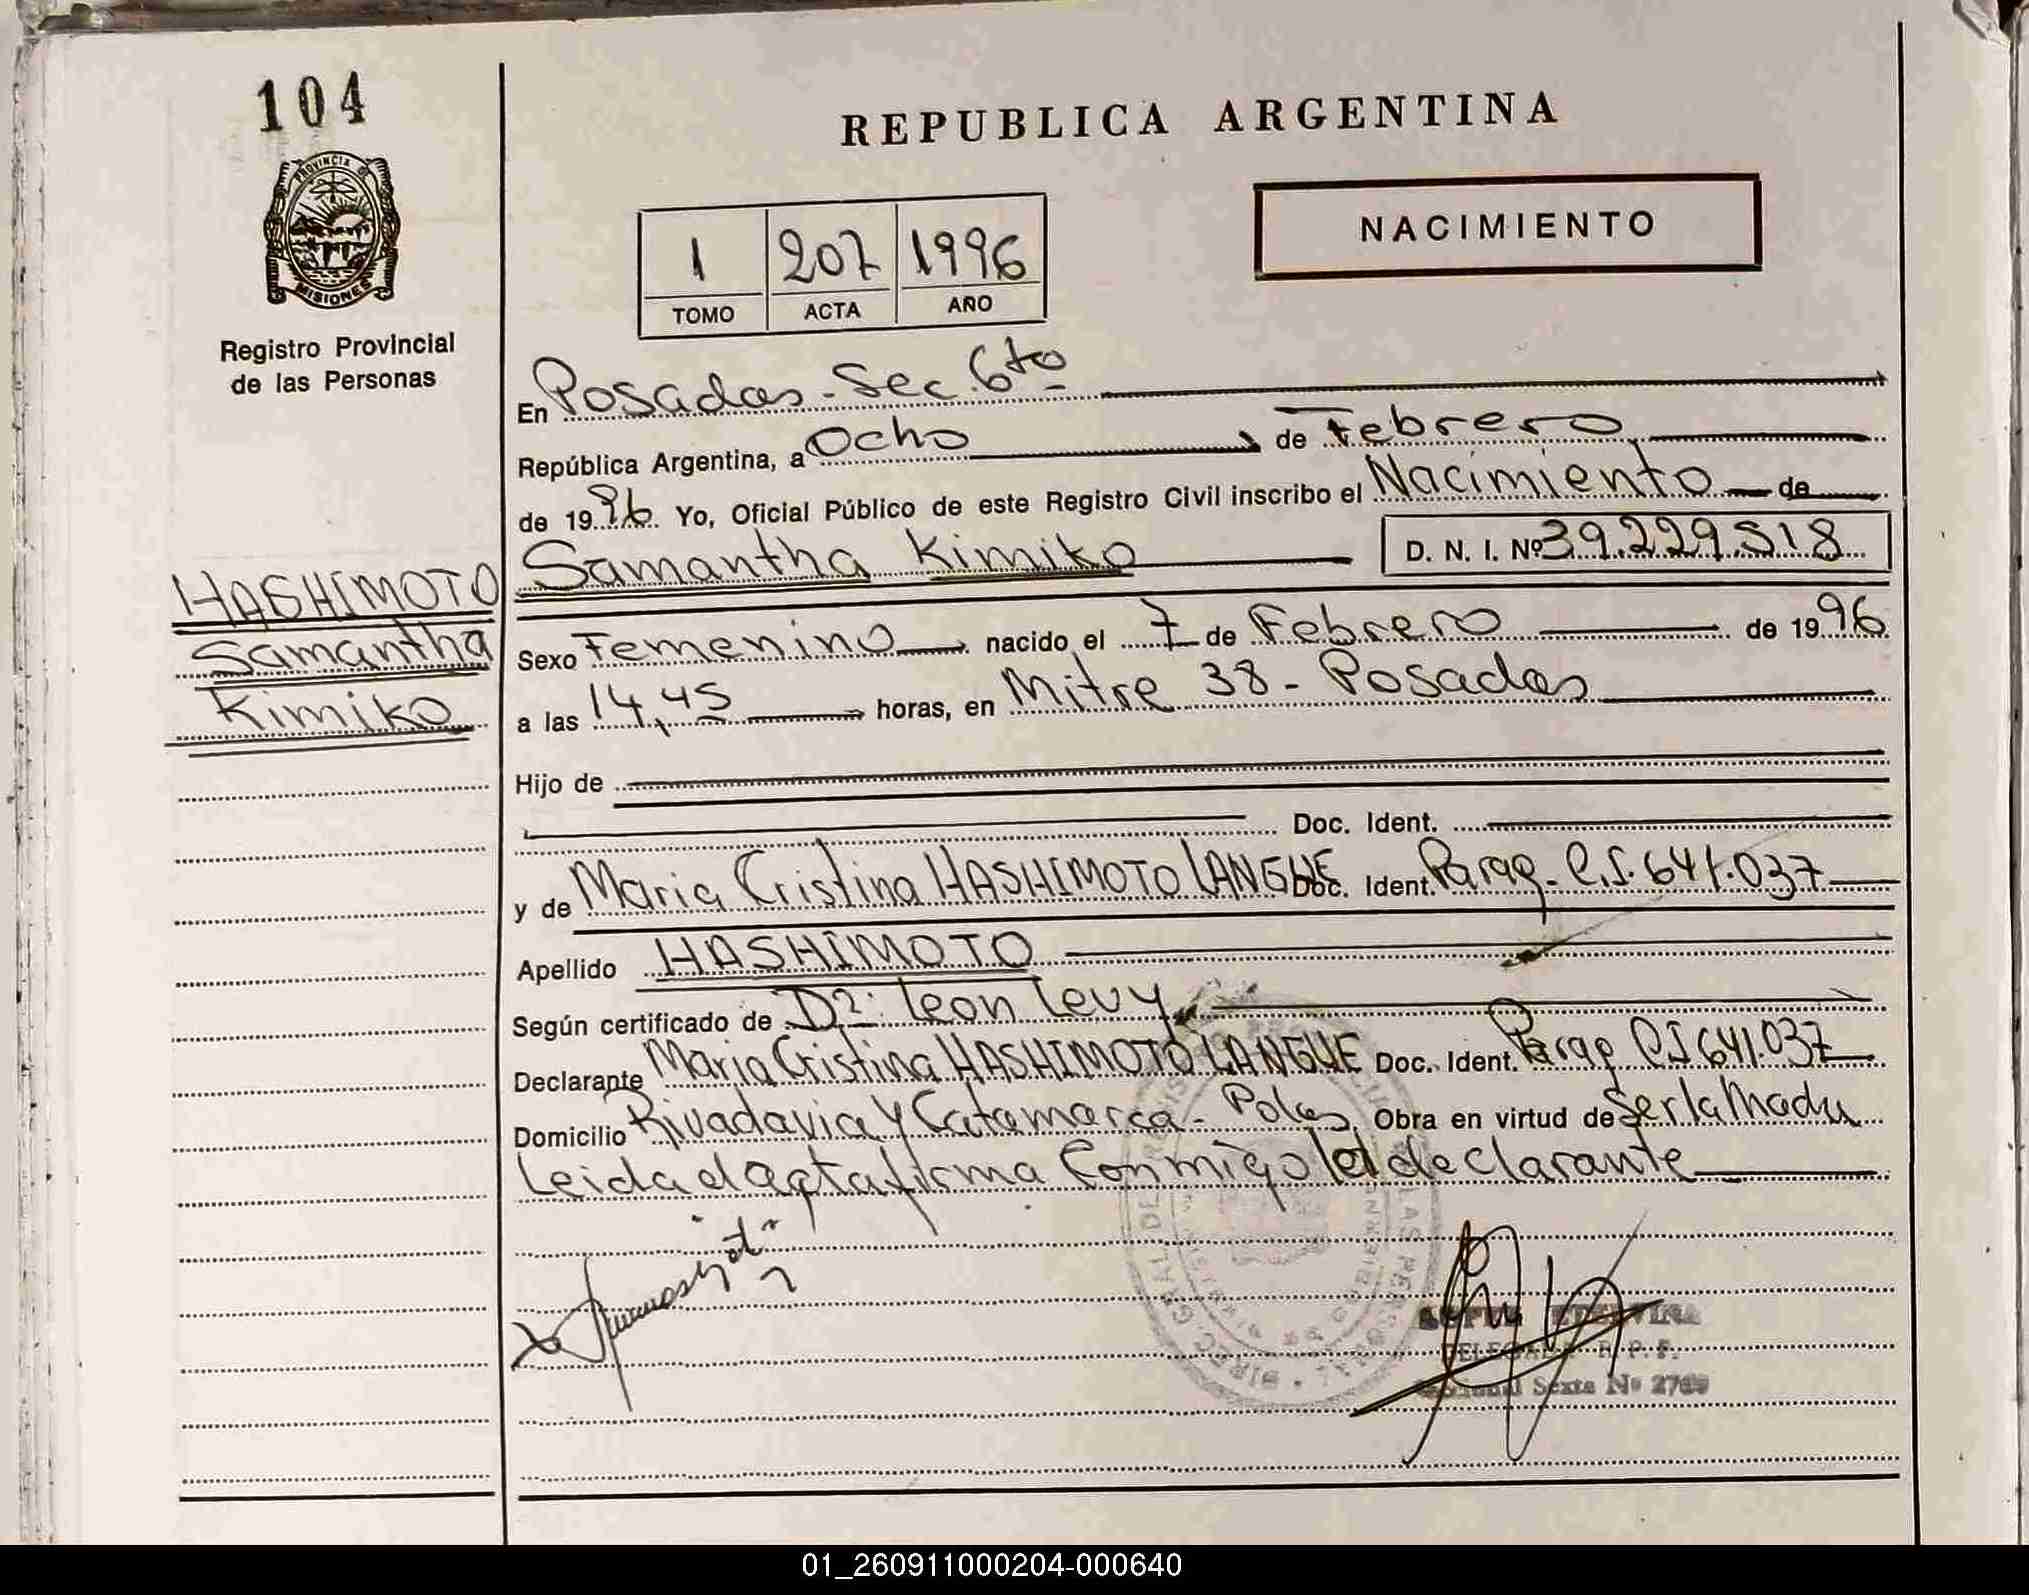 104
PROVINCIA DE
MISIONES
Registro Provincial
de las Personas
HASHIMOTO
Samantha
Kimiko
REPUBLICA ARGENTINA
NACIMIENTO
1 207 1996
TOMO ACTA AÑO
En Posadas - Sec. 6to
República Argentina, a Ocho de Febrero
de 1996. Yo, Oficial Público de este Registro Civil inscribo el Nacimiento de
Samantha Kimiko D. N. I. Nº 39.229.518
Sexo Femenino nacido el 7 de Febrero de 1996
a las 14,45 horas, en Mitre 38 - Posadas
Hijo de
Doc. Ident.
y de Maria Cristina HASHIMOTO LANGUE Doc. Ident. Parag. C.I. 641.037
Apellido HASHIMOTO
Según certificado de Dr: Leon Levy
Declarante Maria Cristina HASHIMOTO LANGUE Doc. Ident. Parag C.I 641.037
Domicilio Rivadavia y Catamarca - Pdas Obra en virtud de Ser la Madre
Leida el acta firma Conmigo el declarante
DELEGADA R. P. P.
Seccional Sexta Nº 2709
01_260911000204-000640